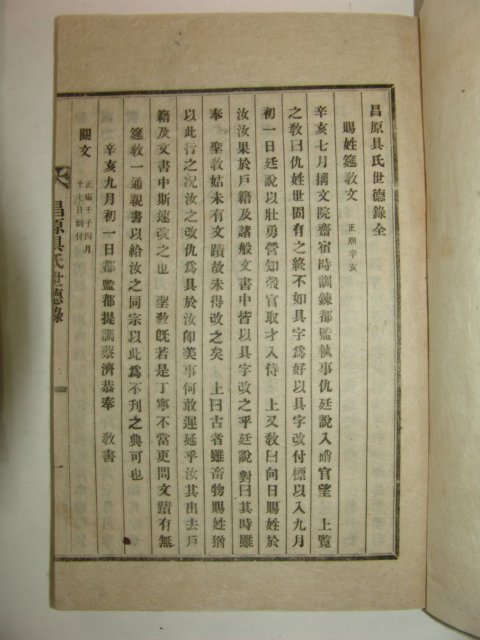 昌原具氏世德錄全
賜姓筵教文 正廟辛亥
辛亥七月摛文院齋宿時訓鍊都監執事仇廷說入哨官望 上覽
之教曰仇姓世固有之終不如具字爲好以具字改付標以入九月
初一日廷說以壯勇營知彀官取才入侍 上又教曰向日賜姓於
汝汝果於戶籍及諸般文書中皆以具字改之乎廷說對曰其時雖
奉 聖教姑未有文蹟故未得改之矣 上曰古者雖畜物賜姓猶
以此行之况汝之改仇爲具於汝卽美事何敢遲延乎汝其出去戶
籍及文書中斯速改之也 聖教旣若是丁寧不當更問文蹟有無
筵教一通親書以給汝之同宗以此爲不刊之典可也
辛亥九月初一日都監都提調蔡濟恭奉 教書
關文 正廟壬子四月十七日到付
昌原具氏世德錄
一